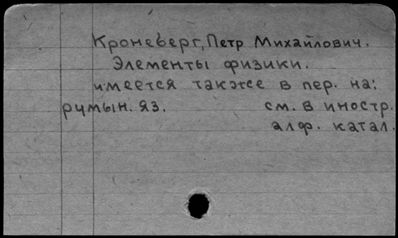 Кронеберг, Петр Михайлович.
Элементы физики.
имеется также в пер. на:
румын. яз. см. в иностр.
алф. катал.